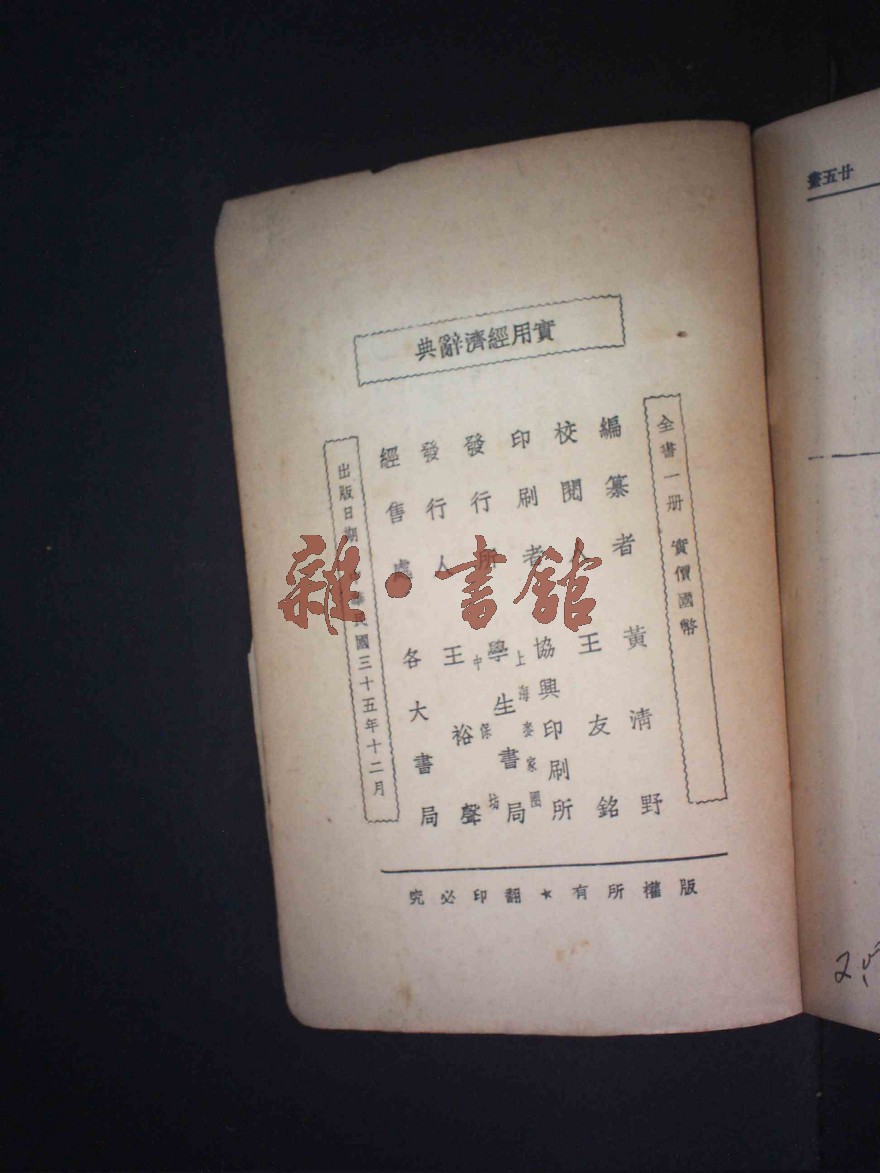 實用經濟辭典
全書一册 實價國幣
編纂者 黃清野
校閱人 王友銘
印刷者 協興印刷所
發行所 學生書局
上海麥家圈
中保坊
發行人 王裕聲
經售處 各大書局
出版日期 中華民國三十五年十二月
版權所有★翻印必究
廿五畫
雜·書館